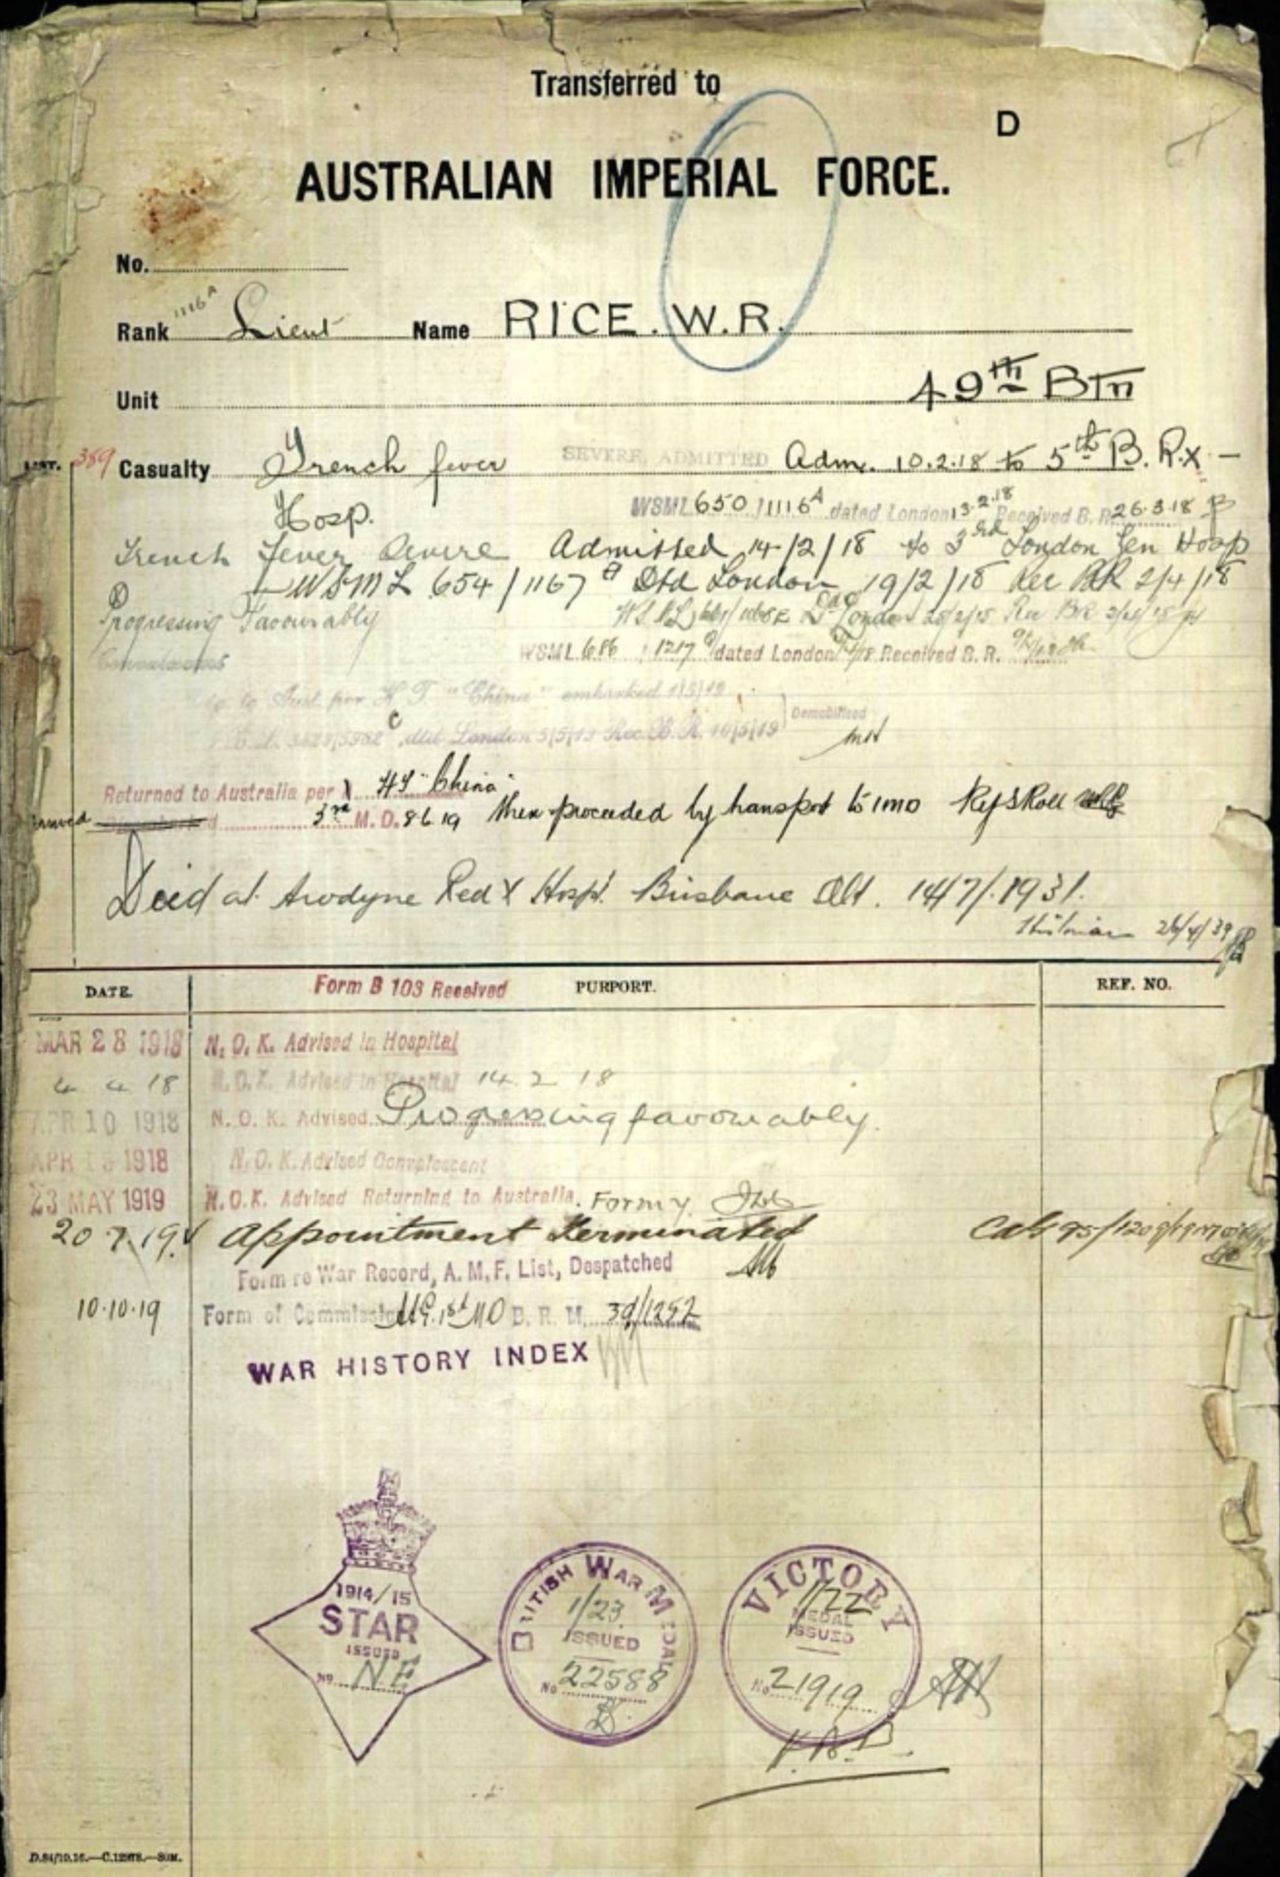 Transferred to
D
AUSTRALIAN IMPERIAL FORCE.
No.
1116A
Rank Lieut Name RICE. W.R.
Unit 49th Btn
LIST. 389 Casualty Trench fever SEVERE, ADMITTED Adm. 10.2.18 to 5th B. R.x -
Hosp. WSML 650/1116A dated London 13.2.18 Received B.R. 26.3.18
Trench Fever Severe Admitted 14/2/18 to 3rd London Gen Hosp
WSML 654/1167 Dtd London 19/2/18 Rec BR 2/4/18
Progressing Favourably London Rec BR
WSML 686 1217 dated London Received B.R.
to Aust. per H.T. "China" embarked 1/5/19
dtd London 5/5/19 Rec B.R. 10/5/19 Demobilised
Returned to Australia per HT "China"
3rd M.D. 8 6 19 then proceeded by transport to 1MD
Died at Anodyne Red X Hosp. Brisbane Qld. 14/7/1931.
26/4/39
DATE. Form B 103 Received PURPORT. REF. NO.
MAR 28 1918 N.O.K. Advised in Hospital
4 4 18 N.O.K. Advised in Hospital 14 2 18
APR 10 1918 N.O.K. Advised Progressing favourably.
APR 1918 N.O.K. Advised Convalescent
23 MAY 1919 N.O.K. Advised Returning to Australia. Form
20 7 19 Appointment Terminated
Form re War Record, A.M.F. List, Despatched
10.10.19 Form of Commission 1st MD B.R.M. 39/1252
WAR HISTORY INDEX
1914/15
STAR
ISSUED
No NE
BRITISH WAR MEDAL
1/23
ISSUED
No 22588
VICTORY
1/22
MEDAL
ISSUED
No 21919